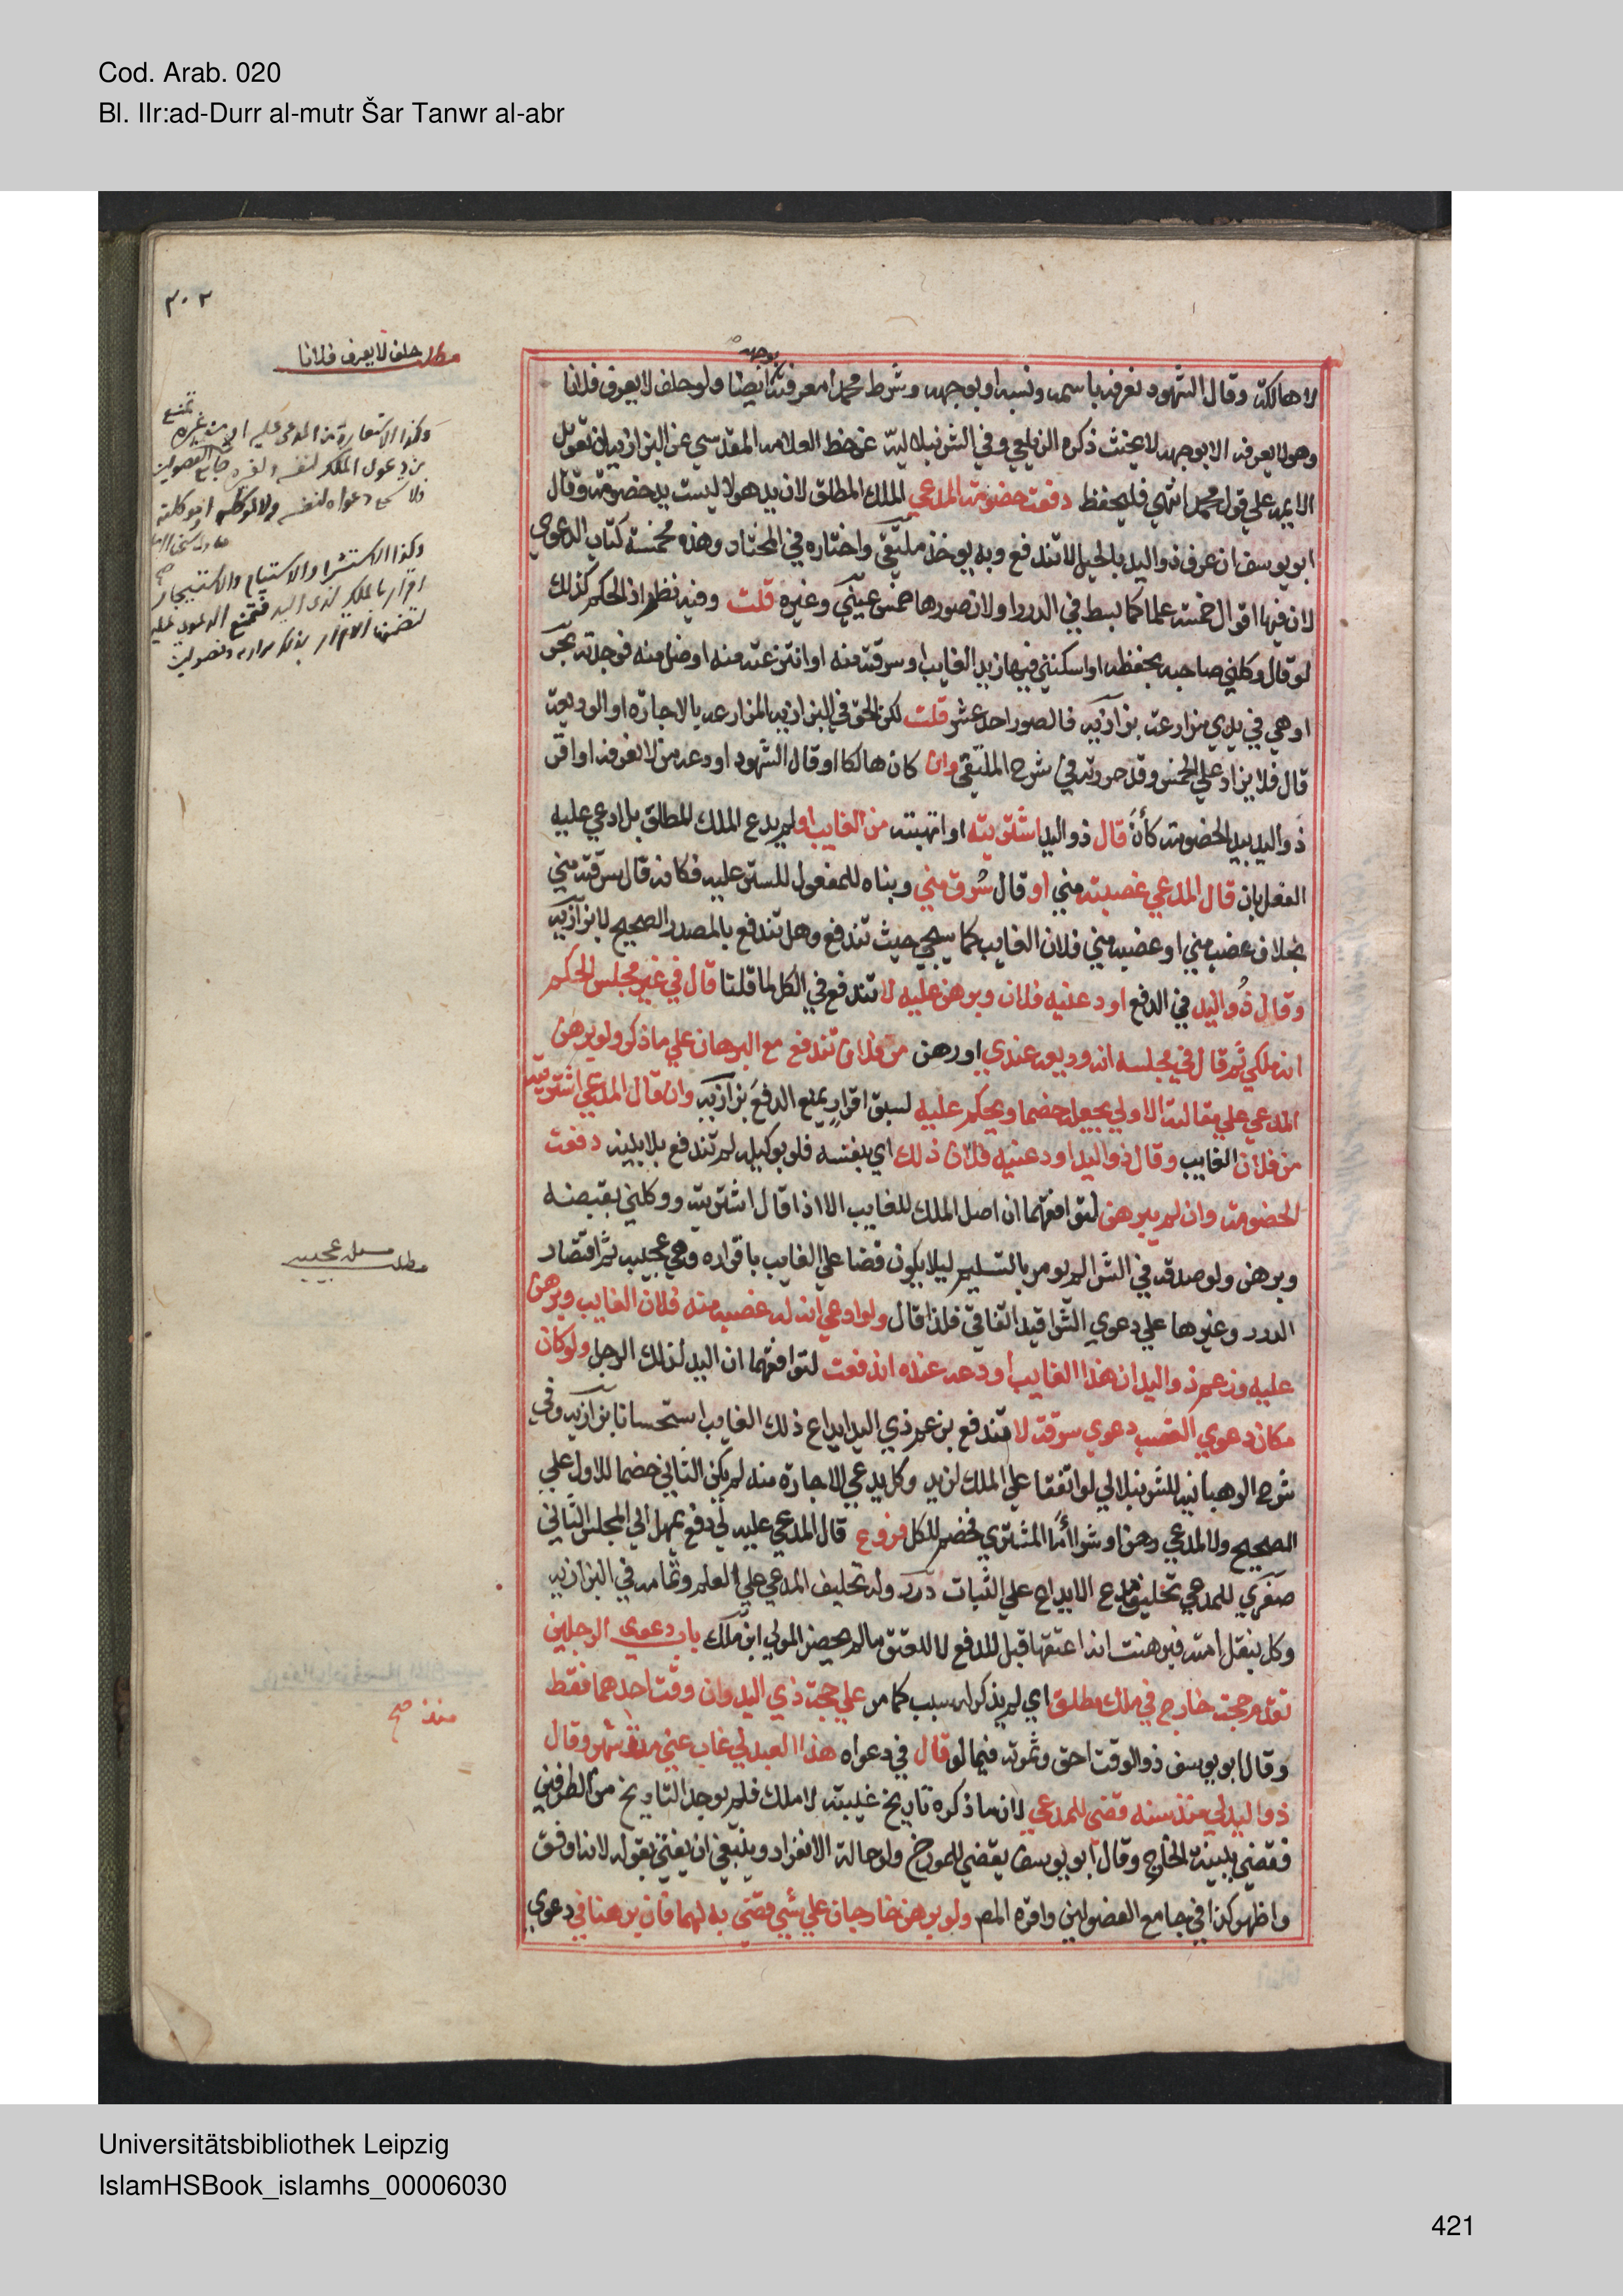 Cod. Arab. 020
Bl. IIr:ad-Durr al-mutr Šar Tanwr al-abr
٣٠٢
مطلب حلف لا يعرف فلانا
لا هالكة وقال الشهود نعرفه باسمه ونسبه او بوجهه وشرط محمد معرفته بوجهه ايضا ولو حلف لا يعرف فلانا
وهو لا يعرفه الا بوجهه لا يحنث ذكره الزيلعي وفي الشرنبلالية عن خط العلامه المقدسي عن البزازيه ان تعويل
الايمه علي قول محمد انتهي فليحفظ دفعت خصومة المدعي الملك المطلق لان يد هولا ليست يد خصومة وقال
ابو يوسف ان عرف ذو اليد بالحيل لا تندفع وبه يوخذ ملتقي واختاره في المختار وهذه مخمسة كتاب الدعوي
لان فيها اقوال خمسة علما كما بسط في الدرر او لان صورها خمس عيني وغيره قلت وفيه نظر اذ الحكم كذلك
لو قال وكلني صاحبه بحفظه او اسكنني فيها زيد الغايب او سرقته منه او انتزعته منه او ضل منه فوجدته بحر
او هي في يدي مزارعة بزازيه فالصور احد عشر قلت لكن الحق في البزازيه المزارعه بالاجارة او الوديعة
قال فلا يزاد علي الخمس وقد حررته في شرح الملتقي وان كان هالكا او قال الشهود اودعه من لا نعرفه او اقر
ذو اليد بيد الخصومة كأن قال ذو اليد اشتريته او اتهبته من الغايب او لم يدع الملك المطلق بل ادعي عليه
الفعل بان قال المدعي غصبته مني او قال سُرق مني وبناه للمفعول للستر عليه فكانه قال سرقته مني
بخلاف غصب مني او غصبه مني فلان الغايب كما سيجي حيث تندفع وهل تندفع بالمصدر الصحيح لا بزازيه
وقال ذُو اليد في الدفع اودعنيه فلان وبرهن عليه لا تندفع في الكل لما قلنا قال في غير مجلس الحكم
انه ملكي ثم قال في مجلسه انه وديعه عندي او رهن من فلان تندفع مع البرهان علي ما ذكر ولو برهن
المدعي علي مقالته الاولي يجعله خصما ويحكم عليه لسبق اقرارٍ يمنع الدفعَ بزازيه وان قال المدعي اشتريته
من فلان الغايب وقال ذو اليد اودعنيه فلان ذلك اي بنفسه فلو بوكيله لم تندفع بلا بينه دفعت
الخصومة وان لم يبرهن لتوافقهما ان اصل الملك للغايب الا اذا قال اشتريته ووكلني بقبضه
وبرهن ولو صدقه في الشرا لم يومر بالتسليم ليلا يكون قضا علي الغايب باقراره وهي عجيبه ثم اقتصار
الدرر وغيرها علي دعوي الشرا قيد اتفاقي فلذا قال ولو ادعي انه له غصبه منه فلان الغايب وبرهن
عليه وزعم ذو اليد ان هذا الغايب اودعه عنده اندفعت لتوافقهما ان اليد لذلك الرجل ولو كان
مكان دعوي الغصب دعوي سرقة لا تندفع بزعم ذي اليد ايداع ذلك الغايب استحسانا بزازيه وفي
شرح الوهبانيه للشرنبلالي لو اتفقا علي الملك لزيد وكل يدعي الاجارة منه لم يكن الثاني خصما للاول علي
الصحيح ولا لمدعي رهن او شرا أما المشتري فخصم للكل فروع قال المدعي عليه لي دفع يمهل الي المجلس الثاني
صغري للمدعي تحليف مدعي الايداع علي الثبات درر وله تحليف المدعي علي العلم وتمامه في البزازيه
وكل بنقل امته فبرهنت انه اعتقها قبل للدفع لا للعتق ما لم يحضر المولي ابن ملك باب دعوي الرجلين
تقدم حجة خارج في ملك مطلق اي لم يذكر له سبب كما مر علي حجة ذي اليد وان وقت احدهما فقط
وقال ابو يوسف ذو الوقت احق وثمرته فيما لو قال في دعواه هذا العبد لي غاب عني منذ شهر وقال
ذو اليد لي منذ سنه قضي للمدعي لان ما ذكره تاريخ غيبته لا ملك فلم يوجد التاريخ من الطرفين
فقضي ببينة الخارج وقال ابو يوسف يقضي للمورخ ولو حالة الانفراد وينبغي ان يفتي بقوله لانه اوفق
واظهر كذا في جامع الفصولين واقره المص ولو برهن خارجان علي شي قضي به لهما فان برهنا في دعوي
وكذا الاستعارة من المدعي عليه او من غيره تمنع
من دعوي الملك لنفسه ولغيره جامع الفصولين
ولا تسمع دعواه لنفسه ولا لموكله
وكذا الاستشرا والاستيام والاستيجار
اقرار بالملك لذي اليد فتمنع الدعوي
مطلب مسئلة عجيبه
منذ صح
Universitätsbibliothek Leipzig
IslamHSBook_islamhs_00006030
421